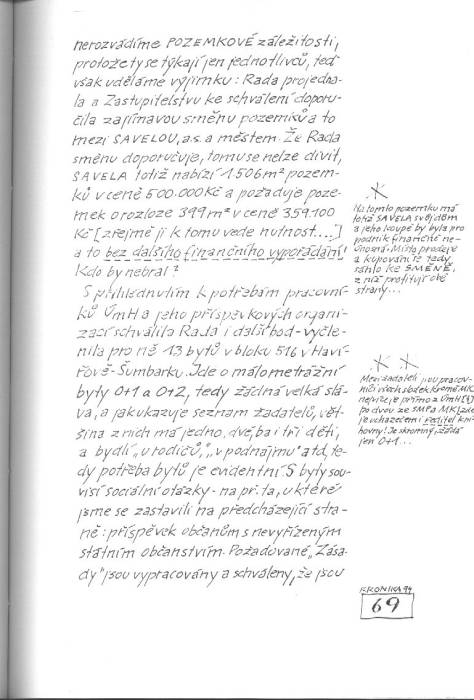 nerozvádíme POZEMKOVÉ záležitosti,
protože ty se týkají jen jednotlivců, teď
však uděláme výjimku: Rada projedna-
la a Zastupitelstvu ke schválení doporu-
čila zajímavou směnu pozemků a to
mezi SAVELOU, a.s. a městem. Že Rada
směnu doporučuje, tomu se nelze divit,
SAVELA totiž nabízí 1.506 m² pozem-
ků v ceně 500.000 Kč a požaduje poze-
mek o rozloze 399 m² v ceně 359.100
Kč [zřejmě ji k tomu vede nutnost...]
a to bez dalšího finančního vypořádání!
Kdo by nebral?
S přihlédnutím k potřebám pracovní-
ků ÚmH a jeho příspěvkových organi-
zací schválila Rada i další bod - vyčle-
nila pro ně 13 bytů v bloku 516 v Haví-
řově-Šumbarku. Jde o málometrážní
byty 0+1 a 0+2, tedy žádná velká slá-
va, a jak ukazuje seznam žadatelů, vět-
šina z nich má jedno, dvě, ba i tři děti,
a bydlí „u rodičů", „v podnájmu" atd, te-
dy potřeba bytů je evidentní. S byty sou-
visí sociální otázky - na př. ta, u které
jsme se zastavili na předcházející stra-
ně: příspěvek občanům s nevyřízeným
státním občanstvím. Požadované „Zása-
dy" jsou vypracovány a schváleny, že jsou
Na tomto pozemku má
totiž SAVELA svůj dům
a jeho koupě by byla pro
podnik finančně ne-
únosná. Místo prodeje
a kupování se tedy
sáhlo ke SMĚNĚ,
z níž profitují obě
strany...
Mezi žadateli jsou pracov-
níci všech složek kromě MK,
nejvíc je přímo z ÚmH [4]
po dvou ze SMP a MK [zde
je uchazečem i ředitel kni-
hovny! Je skromný, žádá
jen 0+1...
KRONIKA 94
69